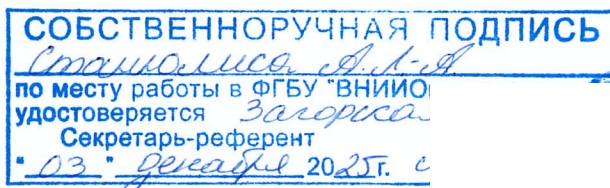 СОБСТВЕННОРУЧНАЯ ПОДПИСЬ
А. Л-А.
по месту работы в ФГБУ "ВНИИО
удостоверяется Загорска
Секретарь-референт
"03" декабря 2025г. с